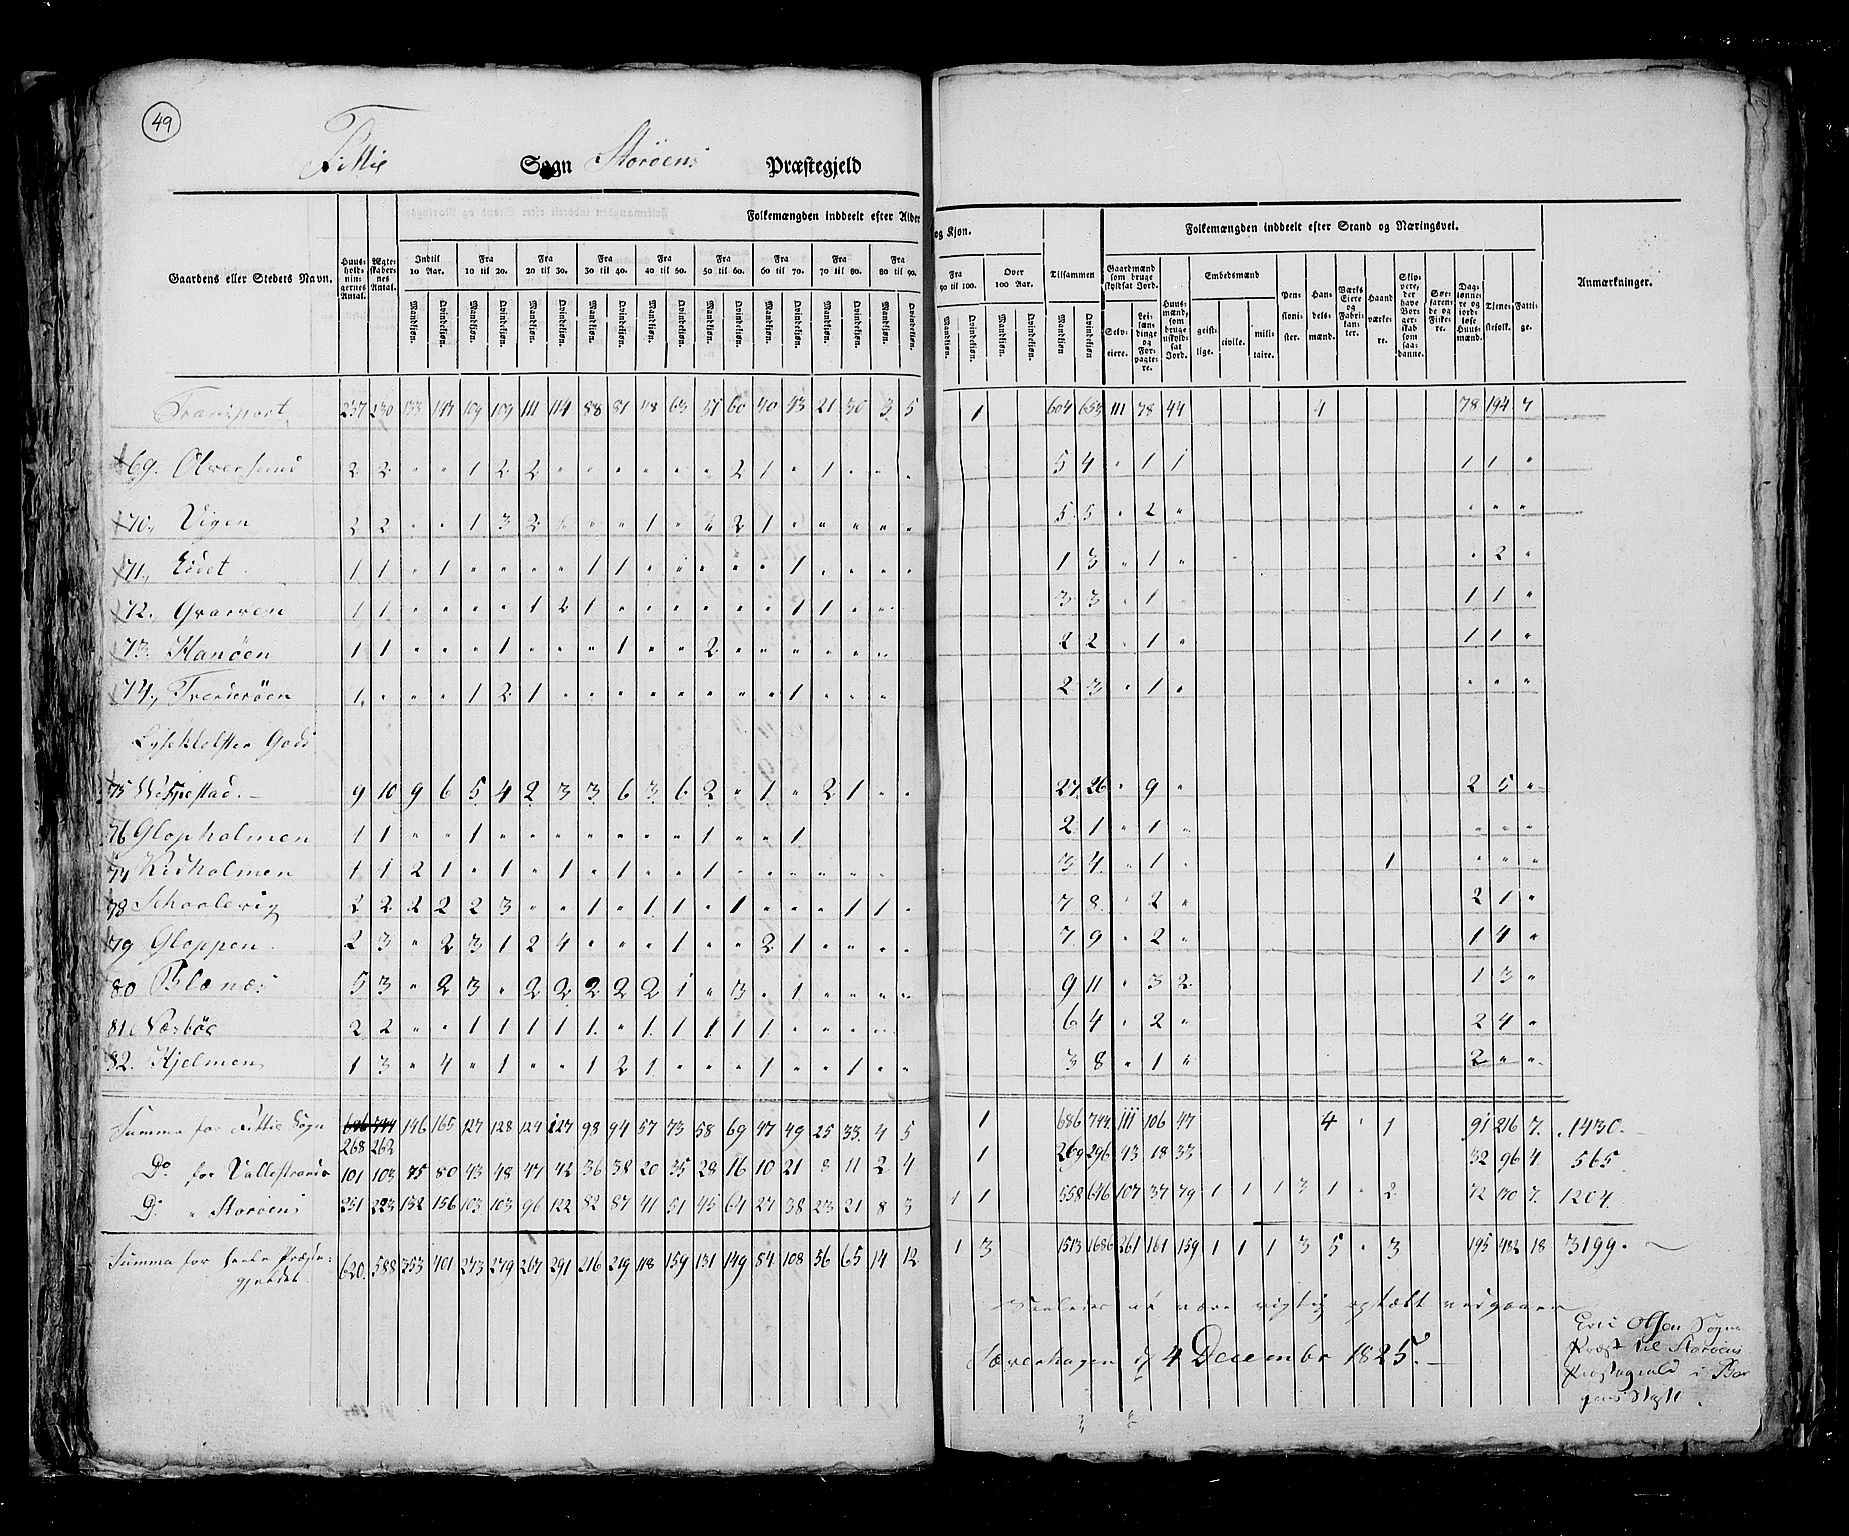 49
Fittie Sogn Storöens Præstegjeld
Folkemængden inddeelt efter Alder og Kjøn.
Folkemængden inddeelt efter Stand og Næringsvei.
Gaardens eller Stedets Navn.
Huusholdningernes Antal.
Ægteskabernes Antal.
Indtil 10 Aar. Fra 10 til 20. Fra 20 til 30. Fra 30 til 40. Fra 40 til 50. Fra 50 til 60. Fra 60 til 70. Fra 70 til 80. Fra 80 til 90. Fra 90 til 100. Over 100 Aar.
Tilsammen
Mandkjøn. Qvindekjøn.
Gaardmænd som bruge skyldsat Jord.
Selveiere. Leilændinge og Forpagtere.
Huusmænd, som bruge uskyldsat Jord.
Embedsmænd
geistlige. civile. militaire.
Pensionister. Handelsmænd. Værks Eiere og Fabrikanter. Haandværkere. Skippere, der have Borgerskab som saadanne. Søefarende og Fiskere. Daglønnere og jordløse Huusmænd. Tjenestefolk. Fattige.
Anmærkninger.
Transport 237 230 133 147 109 109 111 114 88 81 48 63 51 60 40 43 21 30 3 5 1 604 653 111 78 44 4 78 194 7
69. Olversund 2 2 " " 1 2 2 " " " " " " 2 1 " 1 " " " 5 4 " 1 1 1 1 "
70. Vigen 2 2 " " 1 3 2 " " " 1 " " 2 1 " " " " " 5 5 " 2 " " " "
71. Eidet 1 1 " 1 " " " " 1 1 " " " " " 1 " " " " 1 3 " 1 " " 2 "
72. Qvarven 1 1 " " " " 1 2 1 " " " " " " 1 1 " " " 3 3 " 1 " 1 1 "
73. Hanöen 1 1 " " " 1 " " " 1 " " 2 " " " " " " " 2 2 " 1 " 1 1 "
74. 1 " " " 1 2 1 " " " " " " " " 1 " " " " 2 3 " 1 " " " "
Gods
75 9 10 9 6 5 4 2 3 3 6 3 6 2 " 1 " 2 1 " " 27 26 " 9 " 2 5 "
76 Glopholmen 1 1 " " 1 " " " " " " " 1 " " 1 2 1 " 1 " " " "
77 Kidholmen 1 1 2 1 " 1 " 1 " 1 " " 1 " " " " " " " 3 4 " 1 " 1 " " "
78 Schaalevig 2 2 2 2 2 3 " " 1 " 1 1 " 1 " " " 1 1 " 7 8 " 2 " 2 1 "
79 Gloppen 2 3 " 2 3 1 2 4 " " " 1 " " 2 1 " " " " 7 9 " 2 " 1 4 "
80 Blænes 5 3 " 2 3 " 2 2 2 2 2 1 " 3 " 1 " " " " 9 11 " 3 2 1 3 "
81. Nærböe 2 2 " " 1 1 1 1 1 " 1 1 1 1 1 " " " " " 6 4 " 2 " 2 4 "
82. Hjelmen 1 3 " 4 " 1 " " 1 2 1 " " " 1 " " 1 " " 3 8 " 1 " 2 " "
Summa for Fittie Sogn 686 744 146 165 127 128 124 127 98 94 57 73 58 69 47 49 25 33 4 5 1 686 744 111 106 47 4 " 1 91 216 7. 1430.
268 262
Do for Vallestrands 101 103 75 80 43 48 47 42 36 38 20 35 28 16 10 21 8 11 2 4 1 269 296 43 18 33 32 96 4. 565.
Do " Storöens 251 223 132 156 103 103 96 122 82 87 41 51 45 64 27 38 23 21 8 3 1 1 558 646 107 37 79 1 1 1 3 1 " 2 72 170 7. 1204.
Summa for heele Præste- 620. 588 353 401 273 279 267 291 216 219 118 159 131 149 84 108 56 65 14 12 1 3 1513 1686 261 161 159 1 1 1 3 5 " 3 195 482 18 3199.
gjeldet
Saaledes at være rigtig optælt vedgaaer
4 December 1825.
Olsen Sogne
Præst til Storöens
Præstegield i Ber
gens Stift